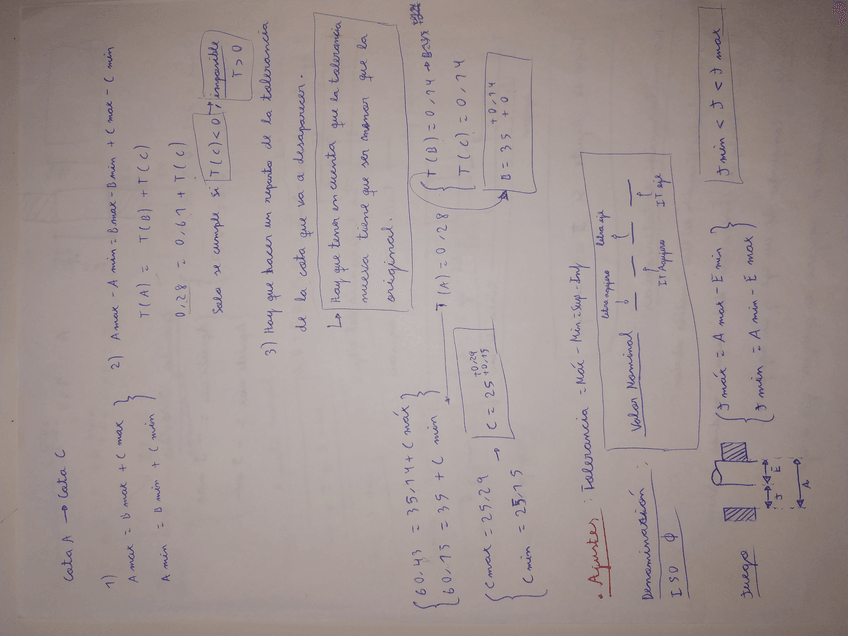 Cota A → Cota C
1)
A max = B max + C max
A min = B min + C min
2) A max - A min = B max - B min + C max - C min
T(A) = T(B) + T(C)
0,28 = 0,61 + T(C)
Solo se cumple si T(C) < 0 → imposible
T > 0
3) Hay que hacer un reparto de la tolerancia
de la cota que va a desaparecer.
↳ Hay que tener en cuenta que la tolerancia
nueva tiene que ser menor que la
original.
60,43 = 35,14 + C máx
60,15 = 35 + C min
→ T(A) = 0,28
T(B) = 0,14 →
T(C) = 0,14
C max = 25,29
C min = 25,15
→ C = 25 +0,29 +0,15
B = 35 +0,14 +0
• Ajustes : Tolerancia = Máx - Mín = Sup - Inf
Denominación :
ISO ϕ
Valor Nominal
Letra agujero
Letra eje
IT Agujero
IT eje
Juego
J
E
A
J máx = A max - E min
J min = A min - E max
J min < J < J max